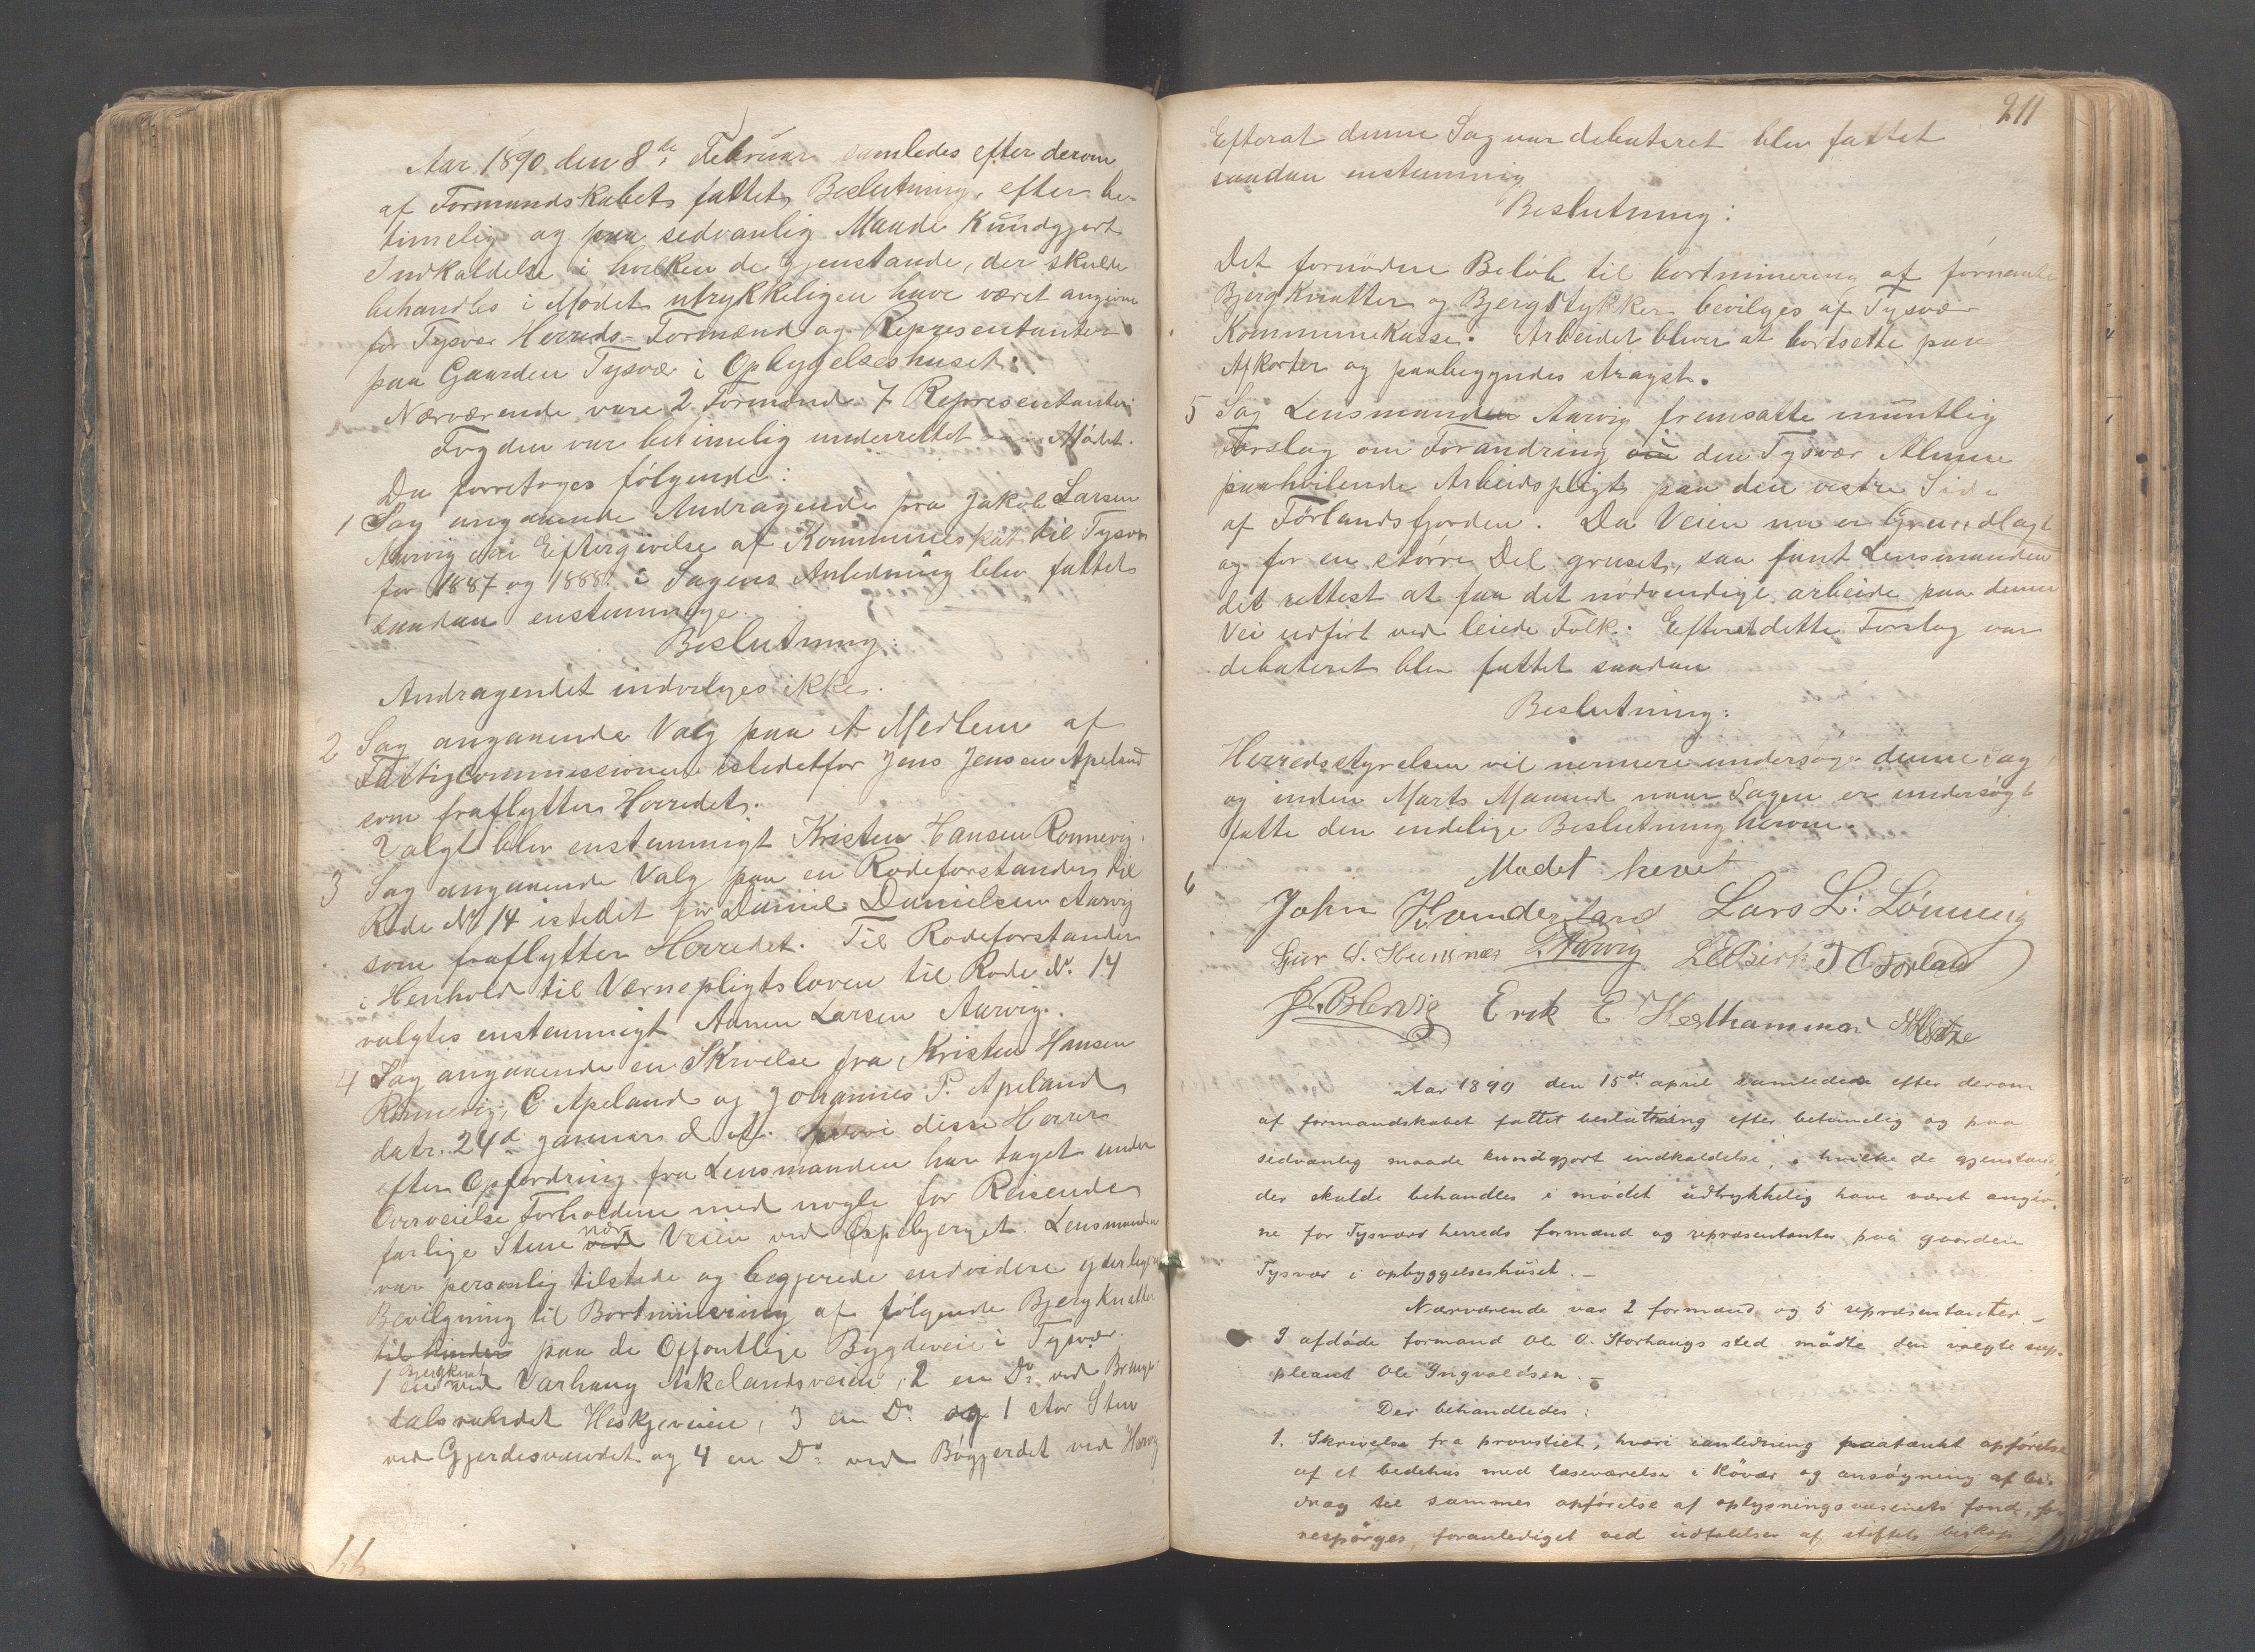 Aar 1890 den 8de Februar samledes efter derom
af Formandskabet fattet Beslutning, efter be-
timelig og paa sedvanlig Maade Kundgjort
Indkaldelse i hvilken de Gjenstande, der skulde
behandles i Mødet utrykkeligen have været angivne
for Tysvær Herreds Formænd og Repræsentanter
paa Gaarden Tysvær i Opbygelseshuset.
Nærværende vare 2 Formænd 7 Repræsentanter
Fogden var betimelig underrettet Mødet.
Da forretoges følgende:
1 Sag angaaende Andragende fra Jakob Larsen
Aarvig om Eftergivelse af Kommuneskat til Tysvær
for 1887 og 1888. i Sagens Anledning blev fattet
saadan enstemmige
Beslutning:
Andragendet indvilges ikke.
2 Sag angaaende Valg paa et Medlem af
Fattigcommissionen istedetfor Jens Jensen Apeland
som fraflytter Herredet.
Valgt blev enstemmigt Kristen Hansen Rønnevig.
3 Sag angaaende Valg paa en Rodeforstander til
Rode No 14 istedet for Daniel Danielsen Aarvig
som fraflytter Herredet. Til Rodeforstander
i Henhold til Værnepligtsloven til Rode Nr. 14
valgtes enstemmigt Adnen Larsen Aarvig.
4 Sag angaaende en Skrivelse fra Kristen Hansen
Rønnevig, C Apeland og Johannes P. Apeland
datr. 24de Januar d. A. hvori disse Herrer
efter Opfordring fra Lensmanden har taget under
Overveielse Forholdene med nogle for Reisende
farlige Stene ved nær Veien ved Espebjerget. Lensmanden
var personlig tilstede og begjerede endvidere yderligere
Bevilgning til Bortminering af følgende Bjergknatter
til hinder paa de Offentlige Bygdeveie i Tysvær.
1 en Bjergknat ved Varhaug Askelandsveien, 2 en Do ved
dalsvandet Heskjeveien, 3 en Do og 1 stor Sten
ved Gjerdesvandet og 4 en Do ved Bøgjerdet ved Hervig
211
Efterat denne Sag var debateret blev fattet
saadan enstemmig
Beslutning:
Det fornødne Beløb til bortminering af fornævnte
Bjergknatter og Bjergstykker bevilges af Tysvær
Kommunekasse. Arbeidet bliver at bortsette paa
Akorter og paabegyndes stragst.
5 Sag Lensmanden Aarvig fremsatte muntlig
Forslag om Forandring om den Tysvær Almue
paahvilende Arbeidspligt paa den vestre Side
af Førlandsfjorden. Da Veien nu er Grundlagt
og for en større Del gruset, saa fant Lensmanden
det rettest at faa det nødvendige arbeide paa denne
Vei udført ved leiede Folk. Efterat dette Forslag var
debateret blev fattet saadan
Beslutning:
Herredsstyrelsen vil nermere undersøge denne Sag
og inden Marts Maaned naar Sagen er undersøgt
fatte den endelige Beslutning herom.
6 Mødet hevet
John Hunderland Lars L. Lønning
Aarvig T C Førland
Erik E Hesthammer
Aar 1890 den 15de april samledes efter derom
af formandskabet fattet beslutning efter betimelig og paa
sidvanlig maade kundgjort indkaldelse, i hvilke de gjenstande,
der skulde behandles i mødet udtrykkelig have været angiv.
ne for Tysvær herreds formænd og repræsentanter paa gaarden
Tysvær i opbyggelseshuset. –
Nærværende var 2 formænd og 5 repræsentanter. –
I afdøde formand Ole O. Storhaugs sted mødte den valgte sup.
pleant Ole Ingvaldsen. –
Der behandledes:
1. Skrivelse fra provstiet, hvori ianledning paatænkt opførelse
af et bedehus med læseværelse i Røvær og ansøgning af bi.
drag til sammes opførelse af oplysningsvæsenets fond, fo
respørges, foranlediget ved udtalelser af stiftets biskop